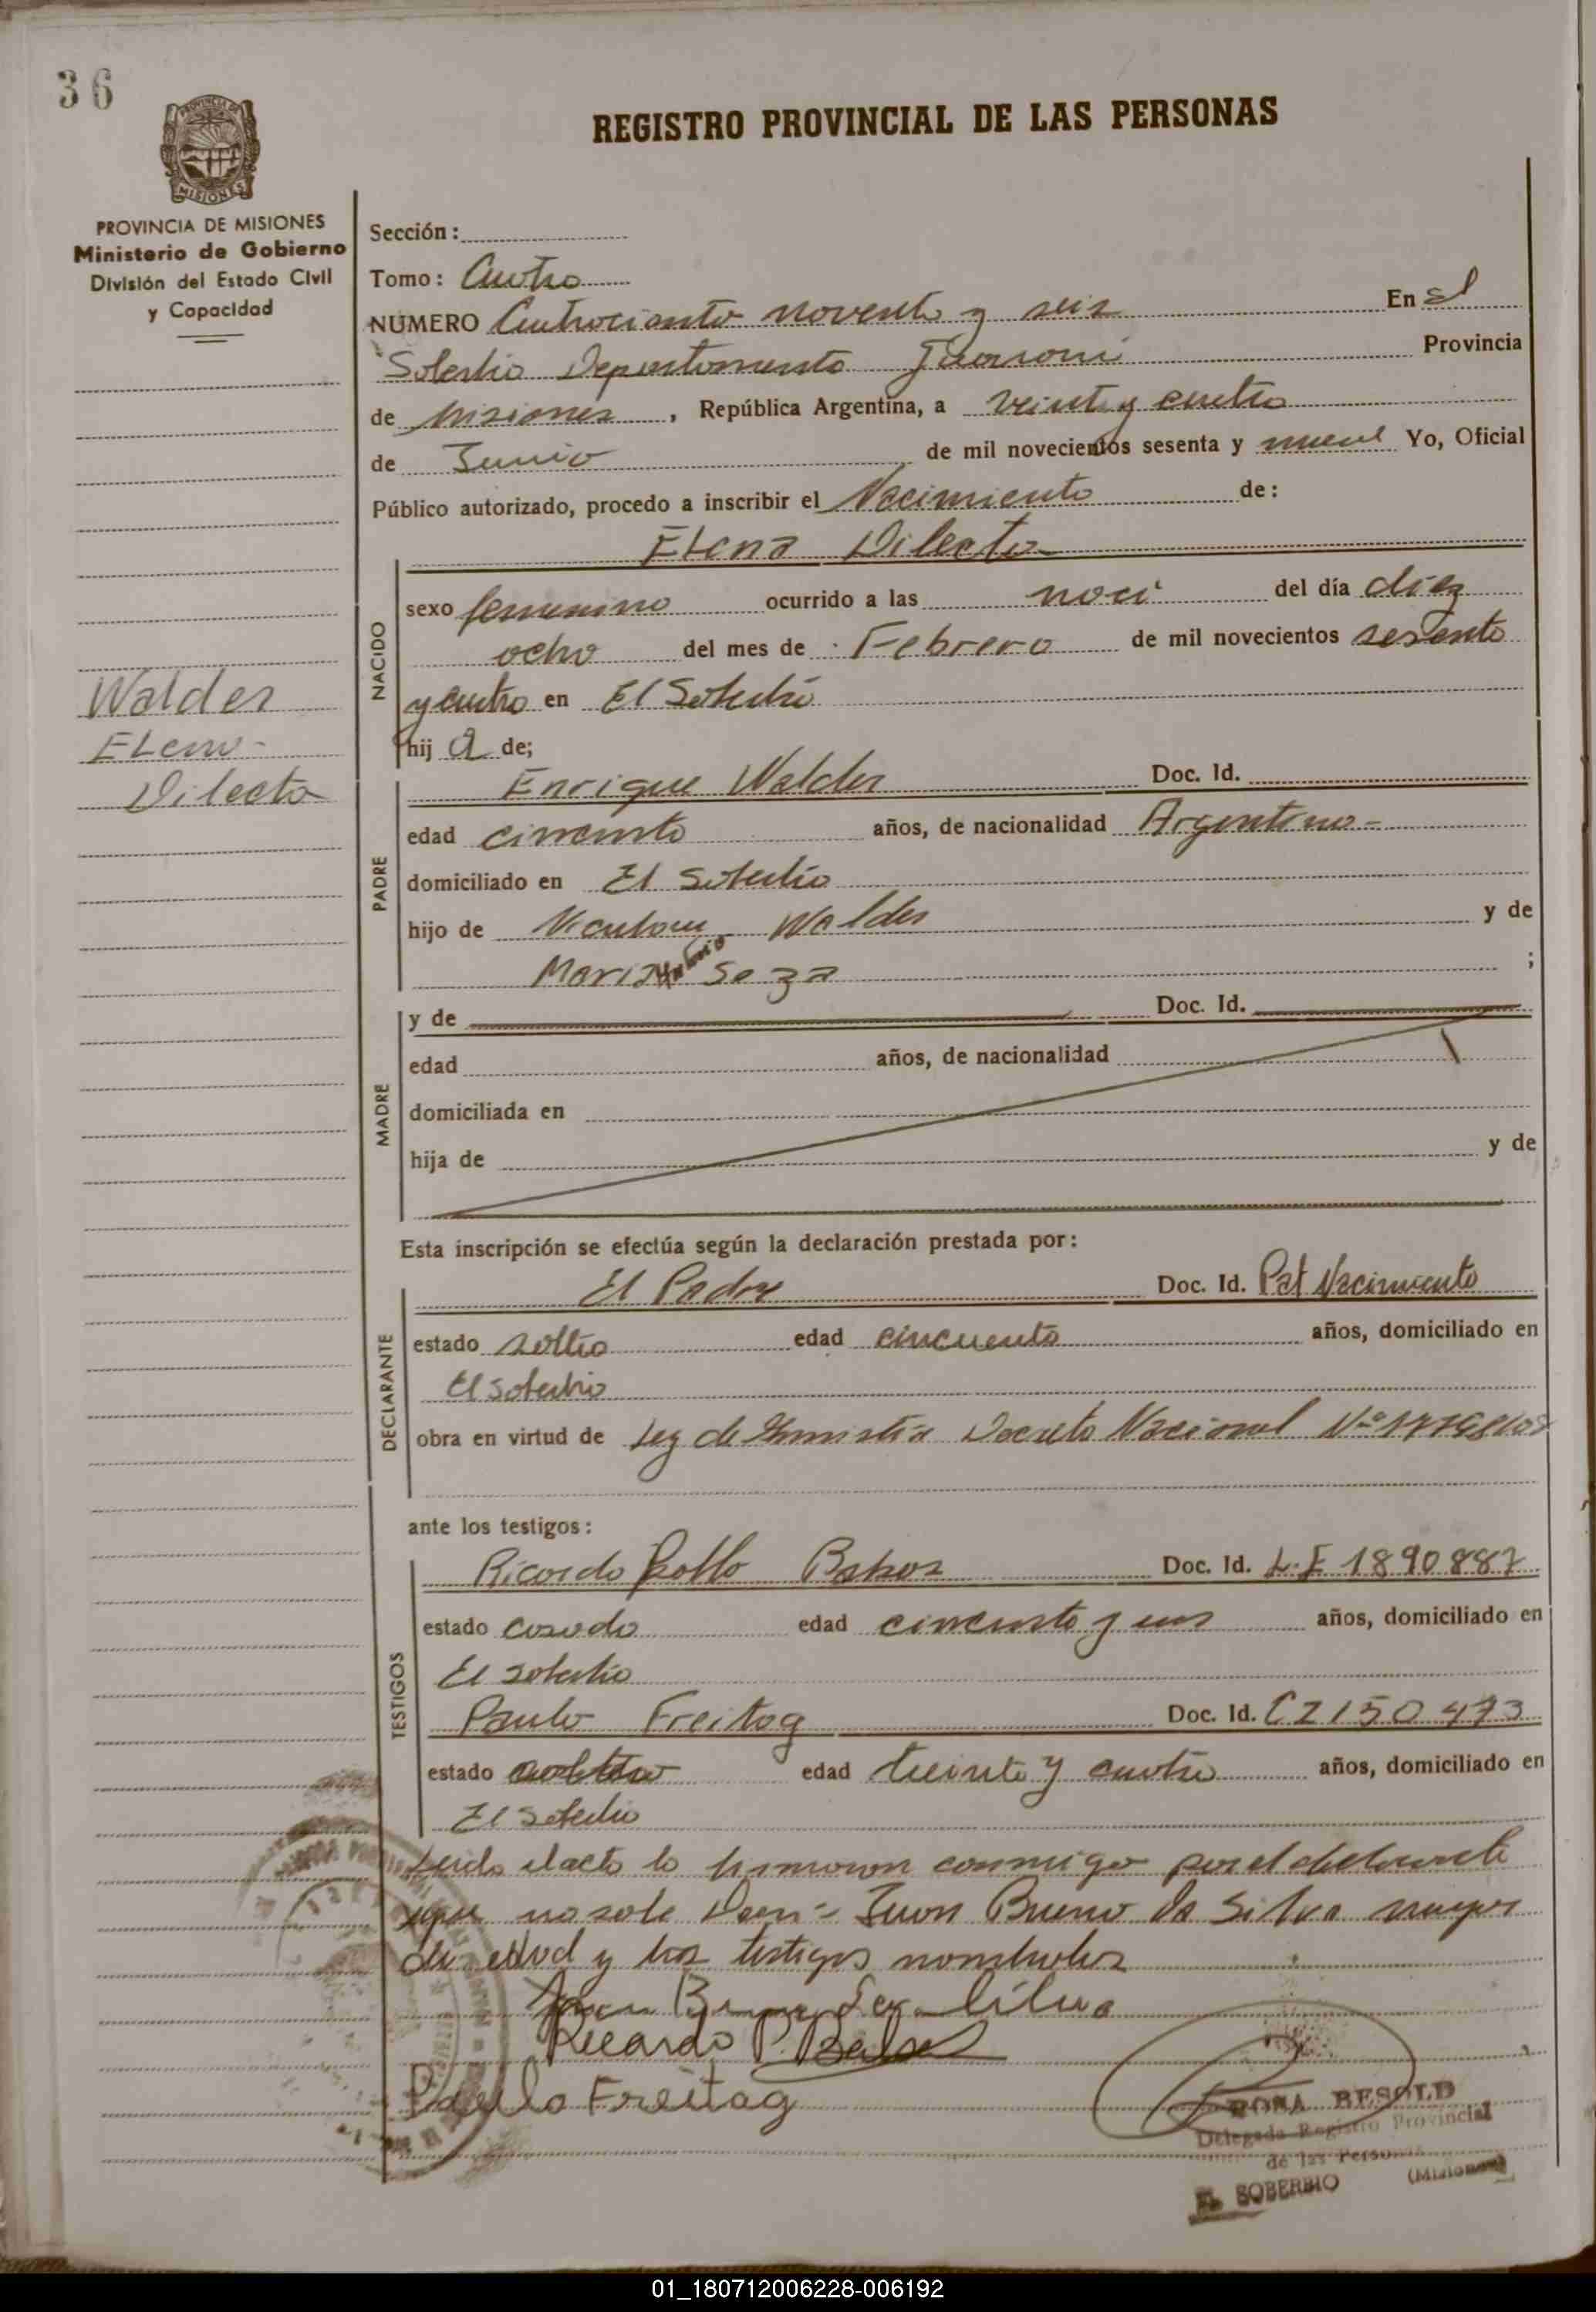 36
REGISTRO PROVINCIAL DE LAS PERSONAS
PROVINCIA DE MISIONES
MISIONES
PROVINCIA DE MISIONES
Ministerio de Gobierno
División del Estado Civil
y Capacidad
Walder
Elena
Dilecta
Sección:
Tomo: Cuatro
NUMERO Cuatrocientos noventa y seis En El
Soberbio Departamento Guaraní Provincia
de Misiones, República Argentina, a veinte y cuatro
de Junio de mil novecientos sesenta y nueve Yo, Oficial
Público autorizado, procedo a inscribir el Nacimiento de:
Elena Dilecta
NACIDO
sexo femenino ocurrido a las del día diez
ocho del mes de Febrero de mil novecientos sesenta
y cuatro en El Soberbio
hij a de;
PADRE
Enrique Walder Doc. Id.
edad cincuenta años, de nacionalidad Argentino-
domiciliado en El Soberbio
hijo de Walder y de
Maria ;
MADRE
y de Doc. Id.
edad años, de nacionalidad
domiciliada en
hija de y de
Esta inscripción se efectúa según la declaración prestada por:
DECLARANTE
El Padre Doc. Id. Nacimiento
estado edad cincuenta años, domiciliado en
El Soberbio
obra en virtud de Ley de Decreto Nacional Nº
ante los testigos:
TESTIGOS
Ricardo Doc. Id. L.E 1890887
estado casado edad cincuenta y uno años, domiciliado en
El Soberbio
Paulo Freitag Doc. Id. CI 150473
estado edad treinta y cuatro años, domiciliado en
El Soberbio
Leido el acta lo firmaron conmigo por el declarante
que no sabe Juan Bueno da Silva mayor
de edad y los testigos nombrados
Juan Bueno da Silva
Ricardo P.
Paulo Freitag
RORA BESOLD
Delegada Registro Provincial
de las Personas
EL SOBERBIO (Misiones)
01_180712006228-006192